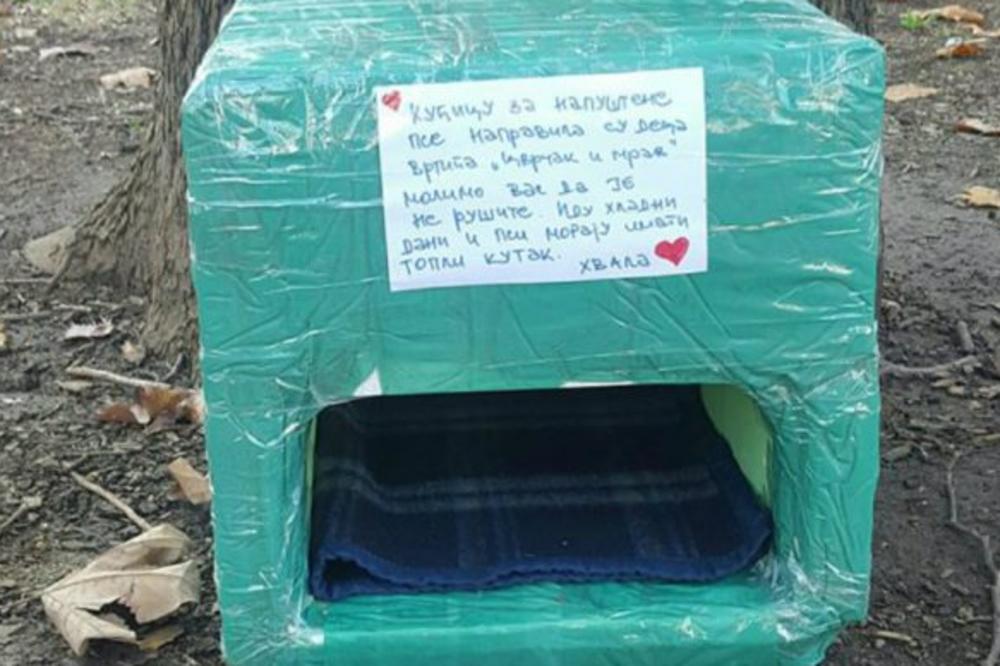 Кућицу за напуштене
псе направила су деца
вртића „Цврчак и мрав"
молимо вас да је
не рушите. Иду хладни
дани и пси морају имати
топли кутак. хвала